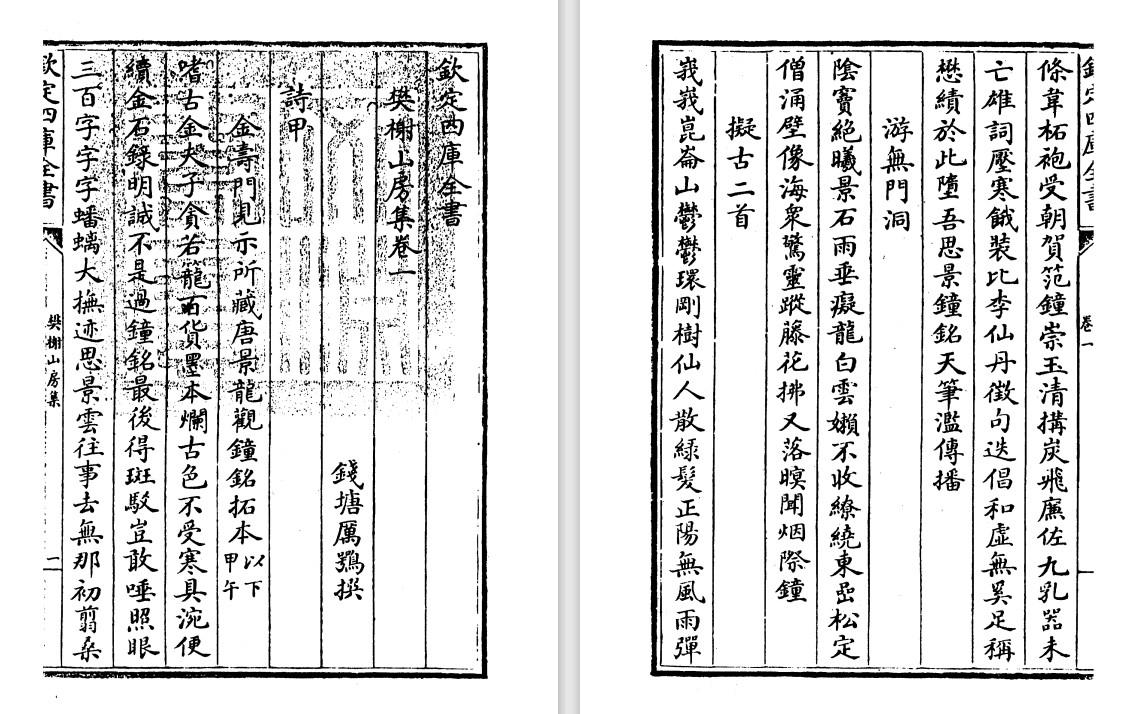 欽定四庫全書
樊榭山房集卷一
錢塘厲鶚撰
詩甲
金壽門見示所藏唐景龍觀鐘銘拓本以下甲午
嗜古金夫子貪若籠百貨墨本爛古色不受寒具涴便
續金石錄明誠不是過鐘銘最後得斑駁豈敢唾照眼
三百字字字蟠螭大橅迹思景雲往事去無那初翦桑
欽定四庫全書
樊榭山房集
一
欽定四庫全書
卷一
條韋柘袍受朝賀笵鐘崇玉清搆炭飛廉佐九乳器未
亡雄詞壓寒餓裝比李仙丹徵句迭倡和虛無奚足稱
懋績於此墮吾思景鐘銘天筆濫傳播
游無門洞
陰竇絕曦景石雨垂癡龍白雲嬾不收繚繞東嵒松定
僧涌壁像海衆驚靈蹤藤花拂又落暝聞烟際鐘
擬古二首
峩峩崑崙山鬱鬱環剛樹仙人散綠髮正陽無風雨彈